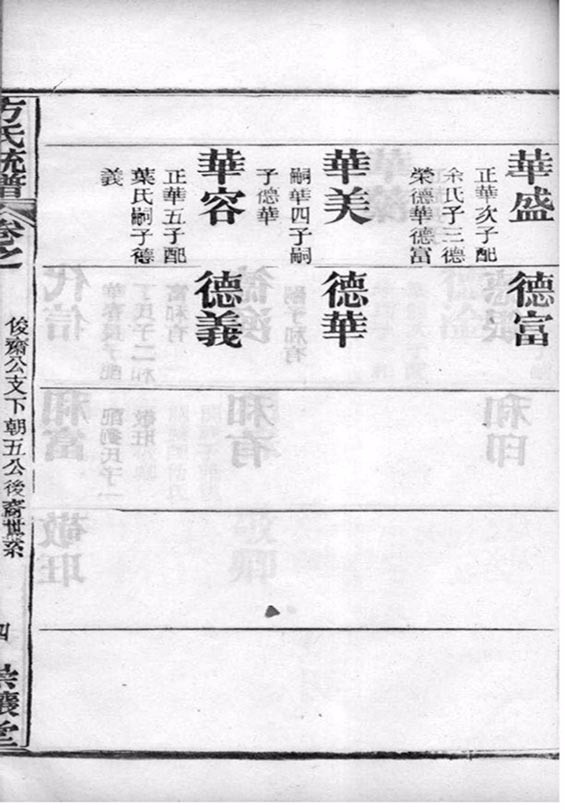 華盛
正華次子配
余氏子三德
榮德華德富
德富
華美
嗣華四子嗣
子德華
德華
華容
正華五子配
葉氏嗣子德
義
德義
方氏統譜
卷之
俊齋公支下朝五公後裔世系
四